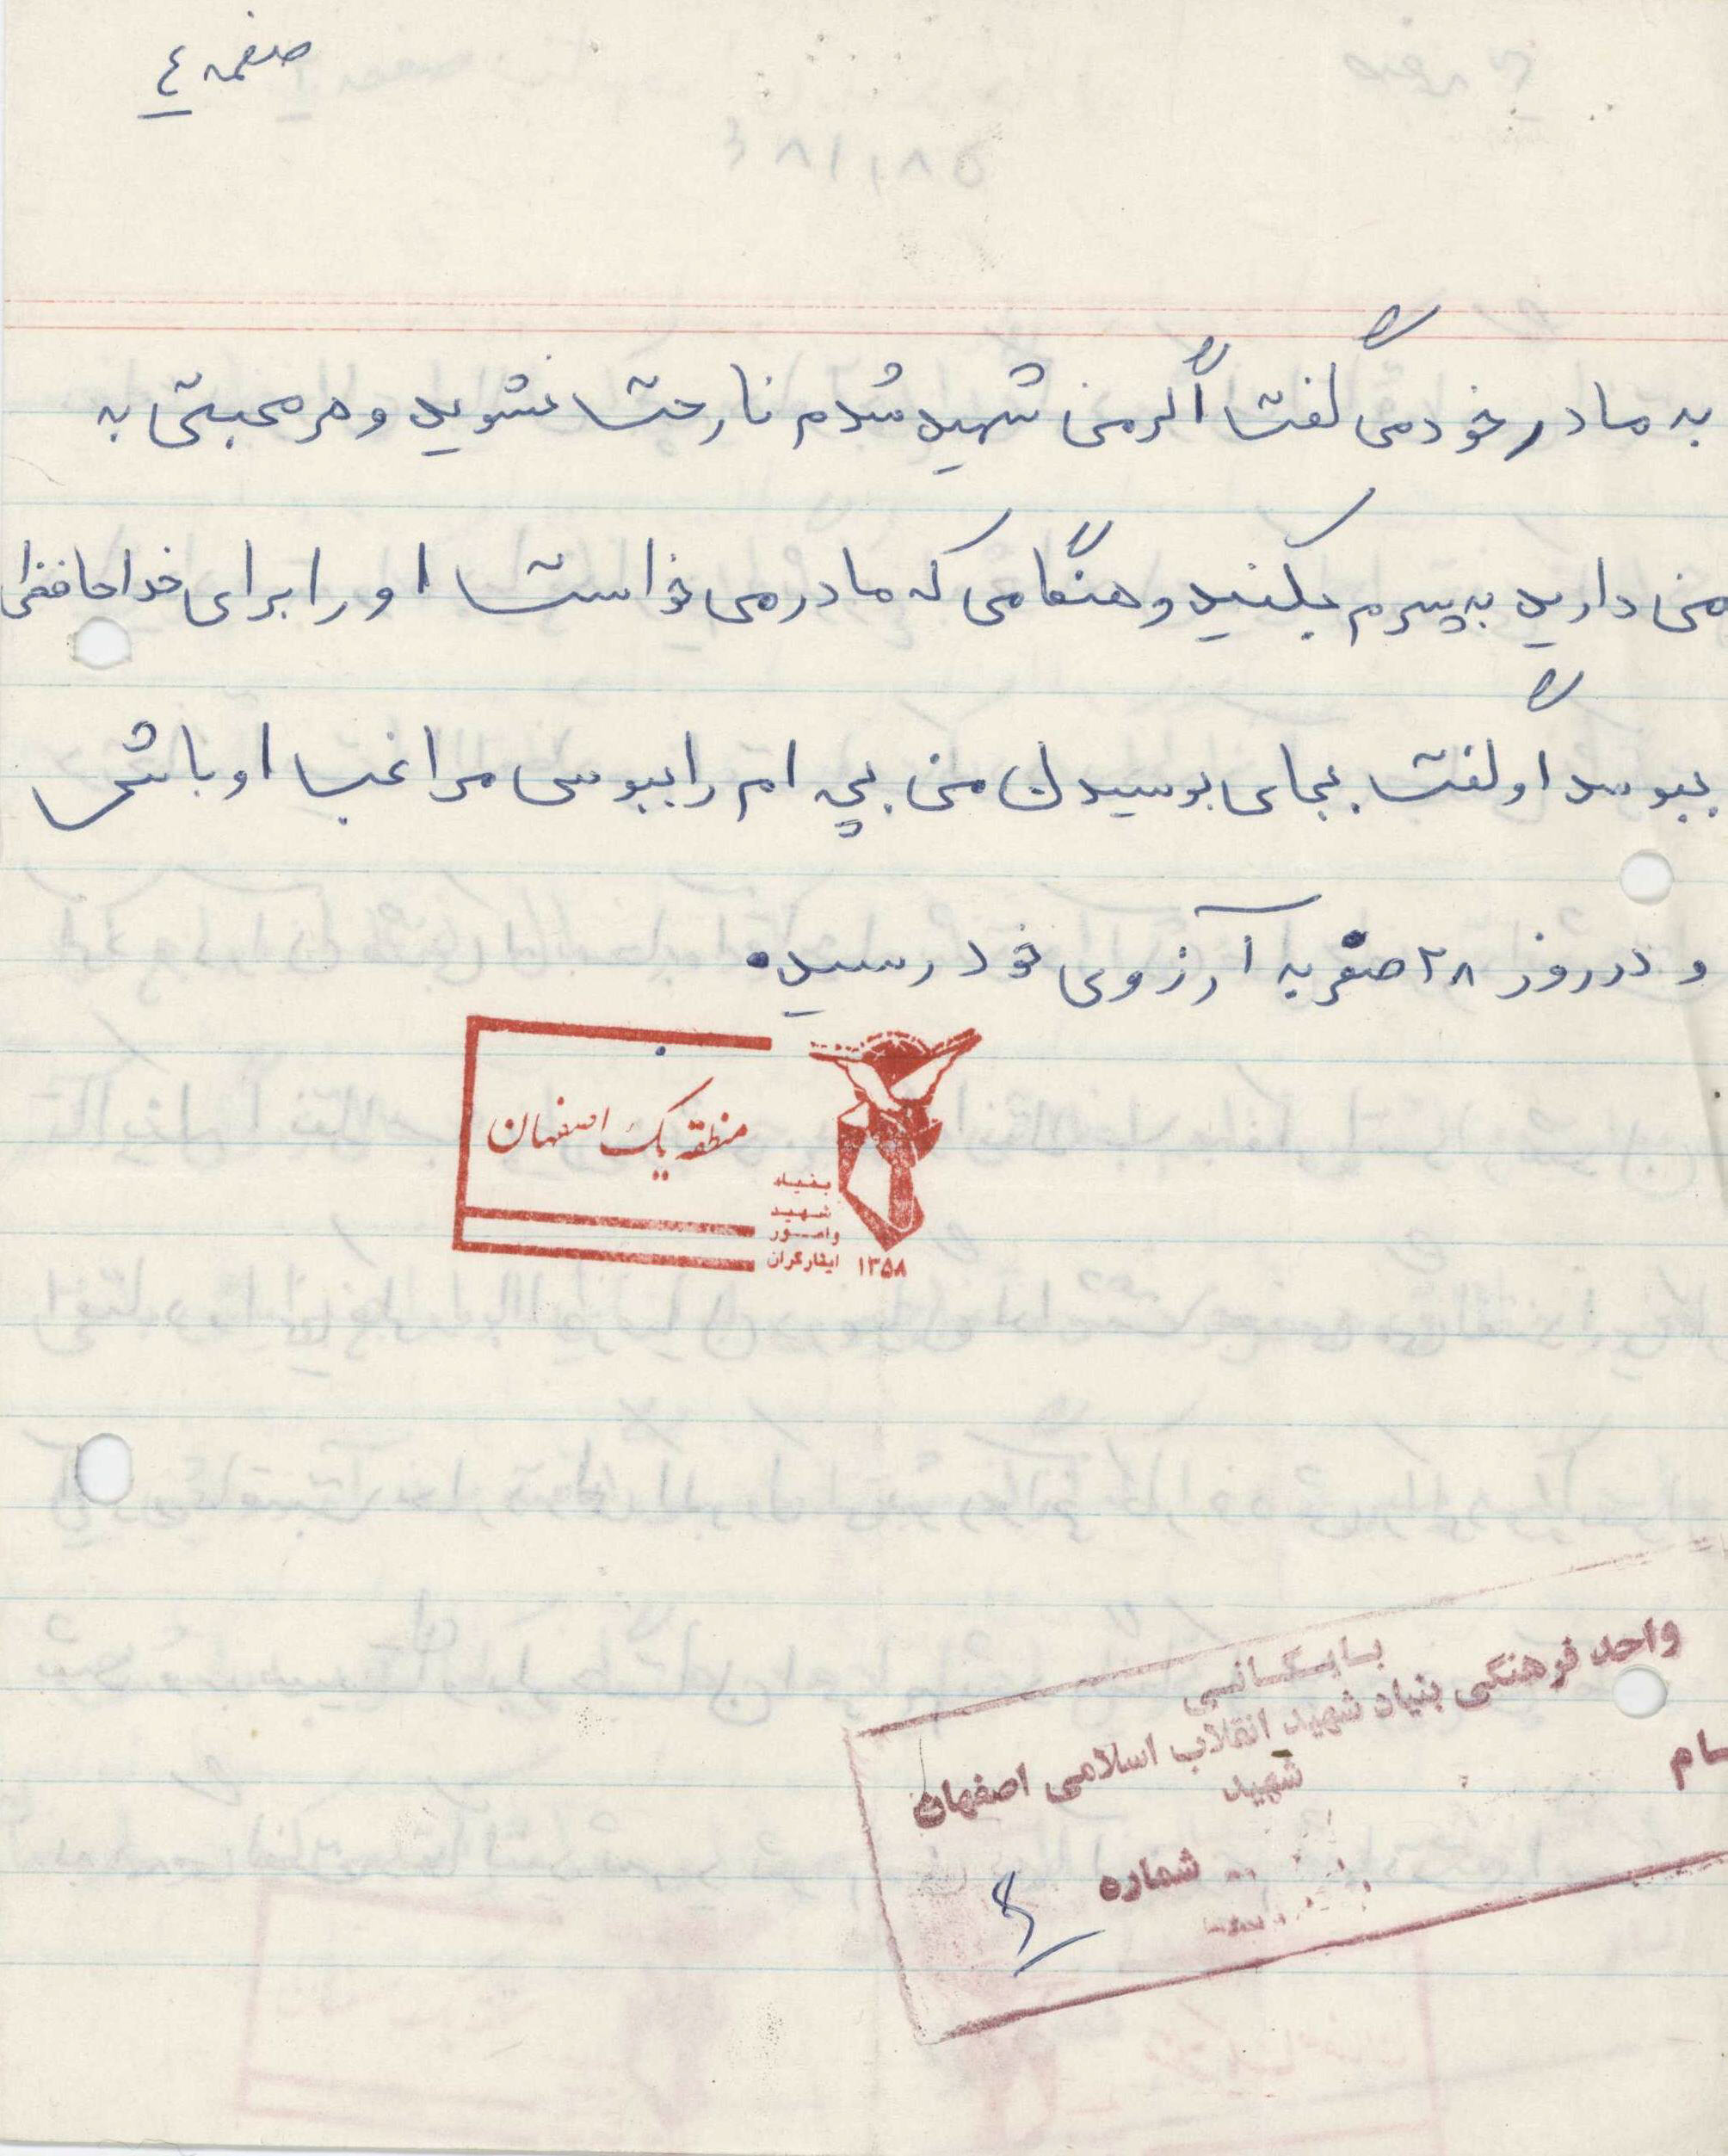 صفحه ٤
به مادر خود می گفت اگر من شهید شدم ناراحت نشوید و هر محبتی به
من دارید به پسرم بکنید و هنگامی که مادر می خواست او را برای خداحافظی
ببوسد او گفت بجای بوسیدن من بچه ام را ببوسی مراغب او باش
و در روز ۲۸ صفر به آرزوی خود رسیده
منطقه یک اصفهان
بنیاد
شهید
وامور
ایثارگران ۱۳۵۸
بایگانی
واحد فرهنگی بنیاد شهید انقلاب اسلامی اصفهان
شهید
شماره